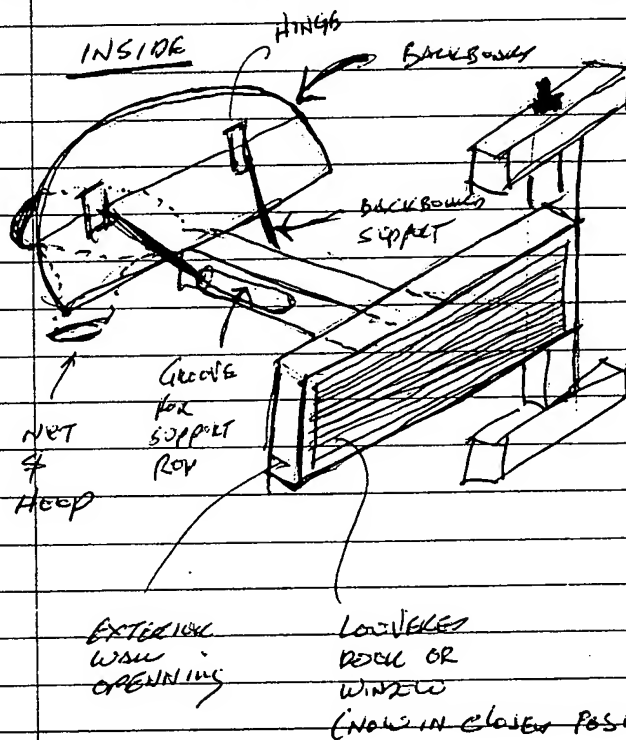 INSIDE
HINGE
BACKBOARD
BACKBOARD
SUPPORT
GROOVE
FOR
SUPPORT
ROD
NET
&
HOOP
EXTERIOR
WALL
OPENNING
LOUVERED
DOOR OR
WINDOW
(NOW IN CLOSED POSI